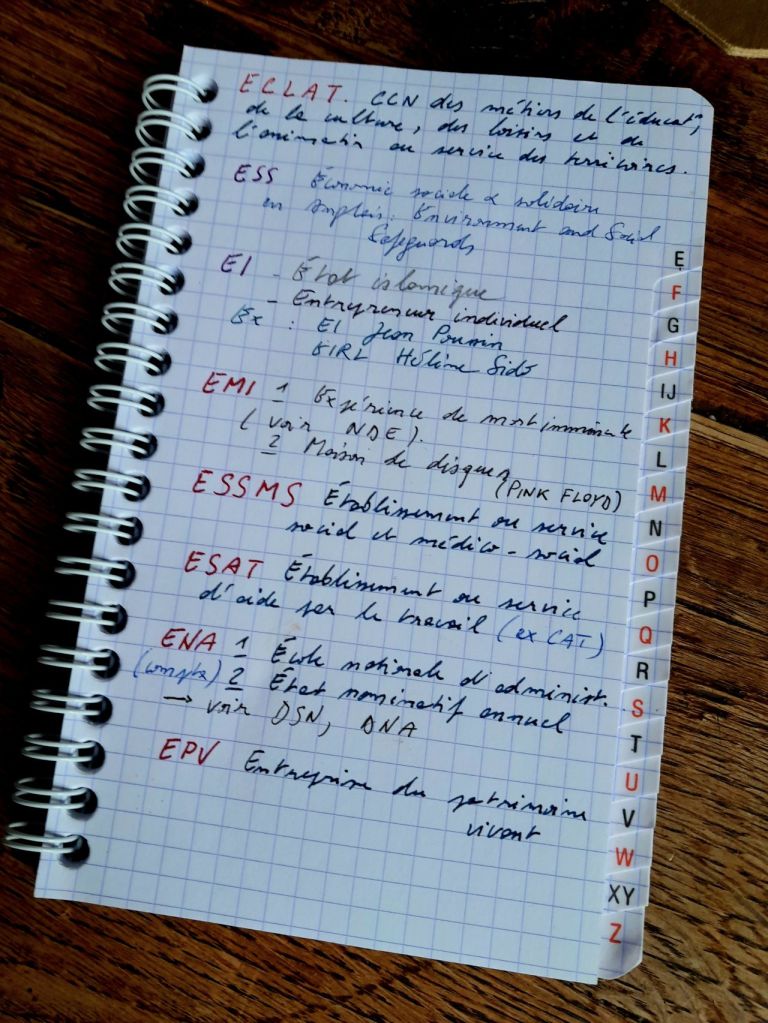 ECLAT. CCN des métiers de l'éducat°,
de la culture, des loisirs et de
l'animation au service des territoires.
ESS Économie sociale & solidaire
en anglais: Environment and Social
Safeguards
EI - État islamique
- Entrepreneur individuel
Ex : EI Jean
EIRL Hélène
EMI 1 Expérience de mort imminente
(voir NDE).
2 Maison de disques
(PINK FLOYD)
ESSMS Établissement ou service
social et médico-social
ESAT Établissement ou service
d'aide par le travail (ex CAT)
ENA 1 École nationale d'administ.
(compta) 2 État nominatif annuel
→ voir DSN, DNA
EPV Entreprise du patrimoine
vivant
E
F
G
H
IJ
K
L
M
N
O
P
Q
R
S
T
U
V
W
XY
Z